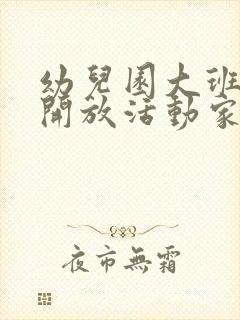 幼兒園大班
開放活動家
夜市無霜